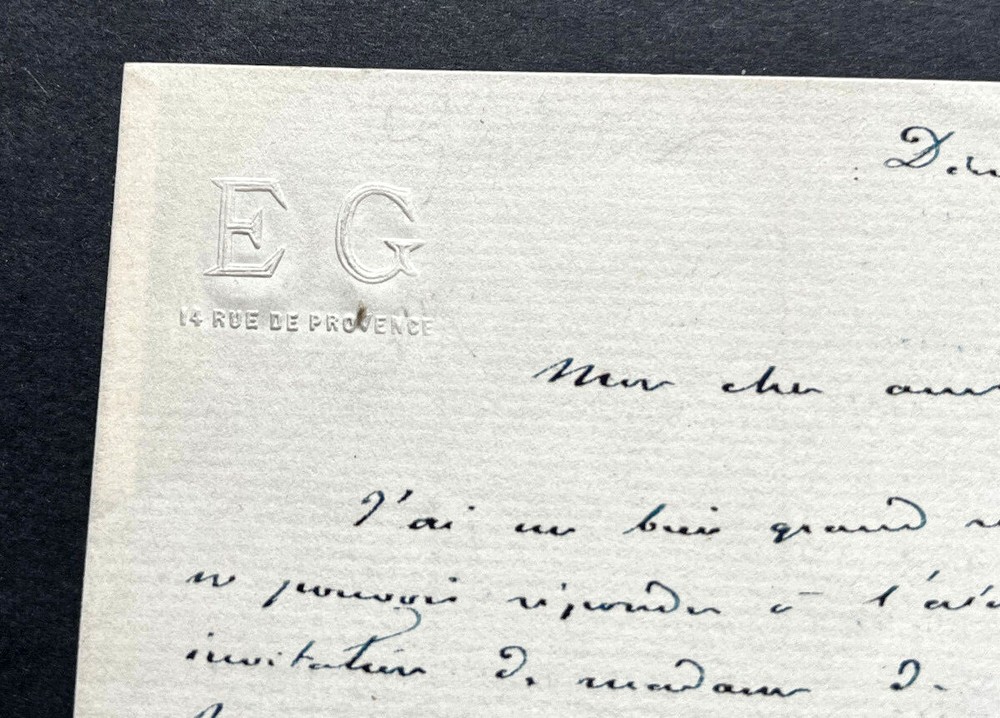 E G
14 RUE DE PROVENCE
Mon cher
J'ai un bien grand
ne pouvoir répondre à
invitation de madame de